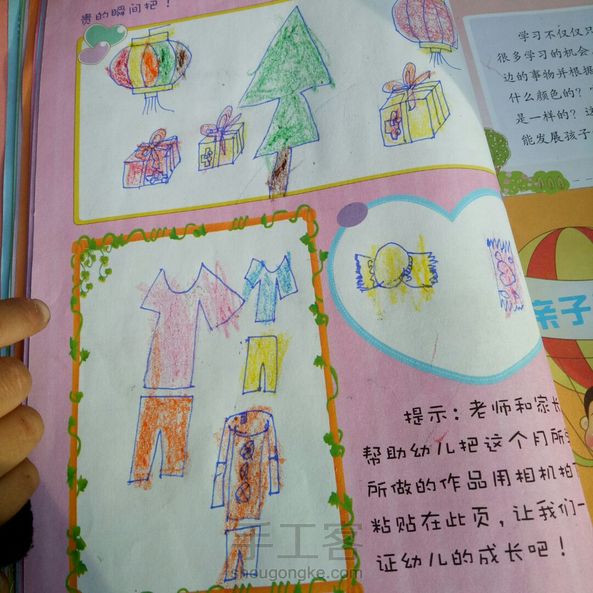 贵的瞬间把！
学习不仅仅只
很多学习的机会
边的事物并根据
什么颜色的？
是一样的？这
能发展孩子
亲子
提示：老师和家长
帮助幼儿把这个月所
所做的作品用相机拍
粘贴在此页，让我们一
证幼儿的成长吧！
手工客
shougongke.com